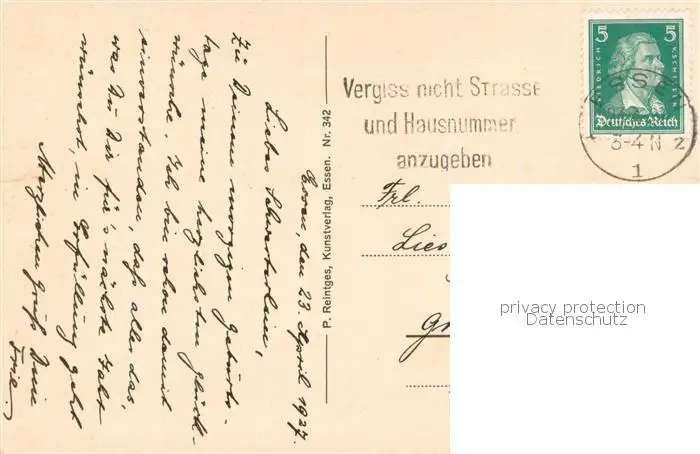 Essen, den 23. April 1927.
Liebes Schwesterlein,
Zu Deinem morgigen Geburts-
tage meine herzlichsten Glück-
wünsche. Ich bin schon damit
einverstanden, daß alles das,
was Du Dir für's nächste Jahr
wünschst, in Erfüllung geht
Herzlichen Gruß Dein
P. Reintges, Kunstverlag, Essen. Nr. 342
Vergiss nicht Strasse
und Hausnummer
anzugeben
5 5
FRIEDRICH V. SCHILLER
Deutsches Reich
ESSEN
3-4 N
2
1
Frl.
Lies
privacy protection
Datenschutz